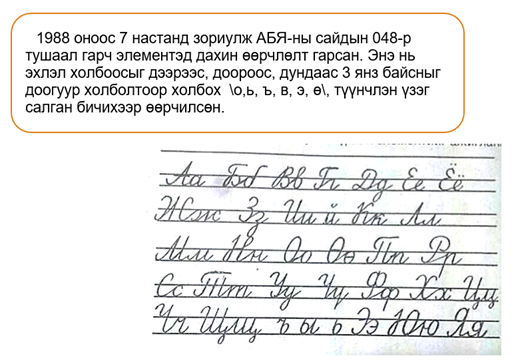 1988 оноос 7 настанд зориулж АБЯ-ны сайдын 048-р
тушаал гарч элементэд дахин өөрчлөлт гарсан. Энэ нь
эхлэл холбоосыг дээрээс, доороос, дундаас 3 янз байсныг
доогуур холболтоор холбох \о,ь, ъ, в, э, ө\, түүнчлэн үзэг
салган бичихээр өөрчилсөн.
Аа Бб Вв Гг Дд Ее Ёё
Жж Зз Ии й Кк Лл
Мм Нн Оо Өө Пп Рр
Сс Тт Уу Үү Фф Хх Цц
Чч Шщ ъ ы ь Ээ Юю Яя